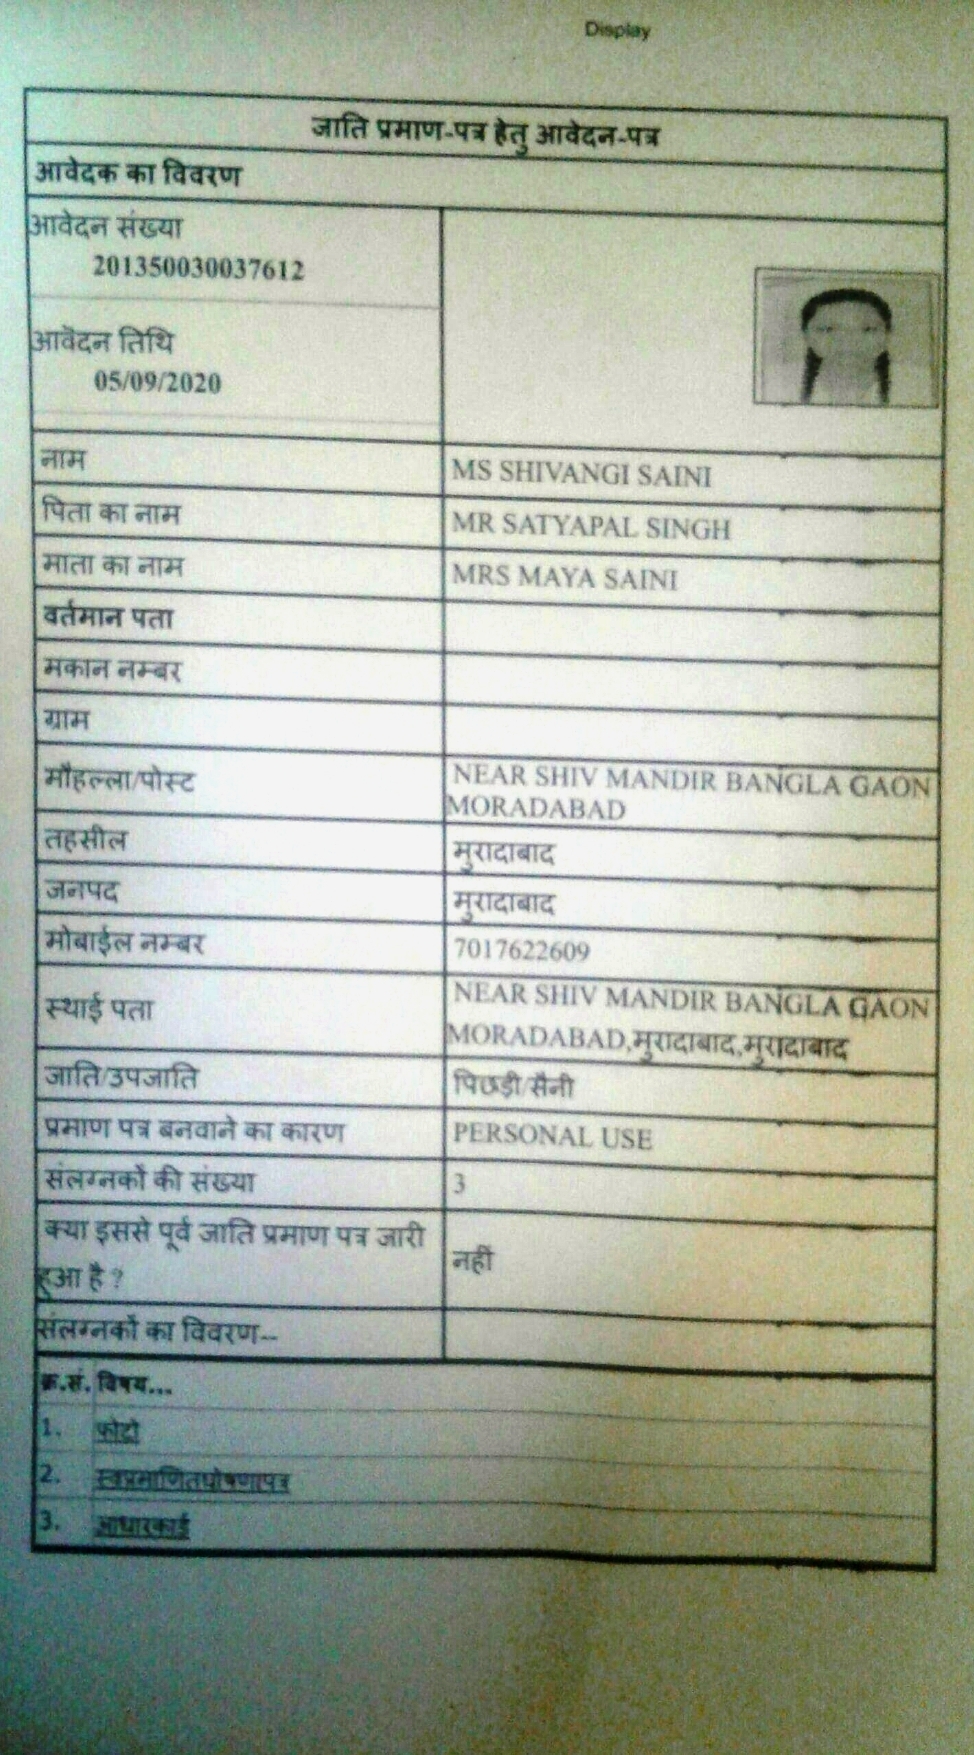 Display
जाति प्रमाण-पत्र हेतु आवेदन-पत्र
आवेदक का विवरण
आवेदन संख्या
201350030037612
आवेदन तिथि
05/09/2020
नाम MS SHIVANGI SAINI
पिता का नाम MR SATYAPAL SINGH
माता का नाम MRS MAYA SAINI
वर्तमान पता
मकान नम्बर
ग्राम
मौहल्ला/पोस्ट NEAR SHIV MANDIR BANGLA GAON
MORADABAD
तहसील मुरादाबाद
जनपद मुरादाबाद
मोबाईल नम्बर 7017622609
स्थाई पता NEAR SHIV MANDIR BANGLA GAON
MORADABAD,मुरादाबाद,मुरादाबाद
जाति/उपजाति पिछड़ी/सैनी
प्रमाण पत्र बनवाने का कारण PERSONAL USE
संलग्नकों की संख्या 3
क्या इससे पूर्व जाति प्रमाण पत्र जारी
हुआ है ? नहीं
संलग्नकों का विवरण--
क्र.सं. विषय...
1. फोटो
2. स्वप्रमाणितघोषणापत्र
3. आधारकार्ड